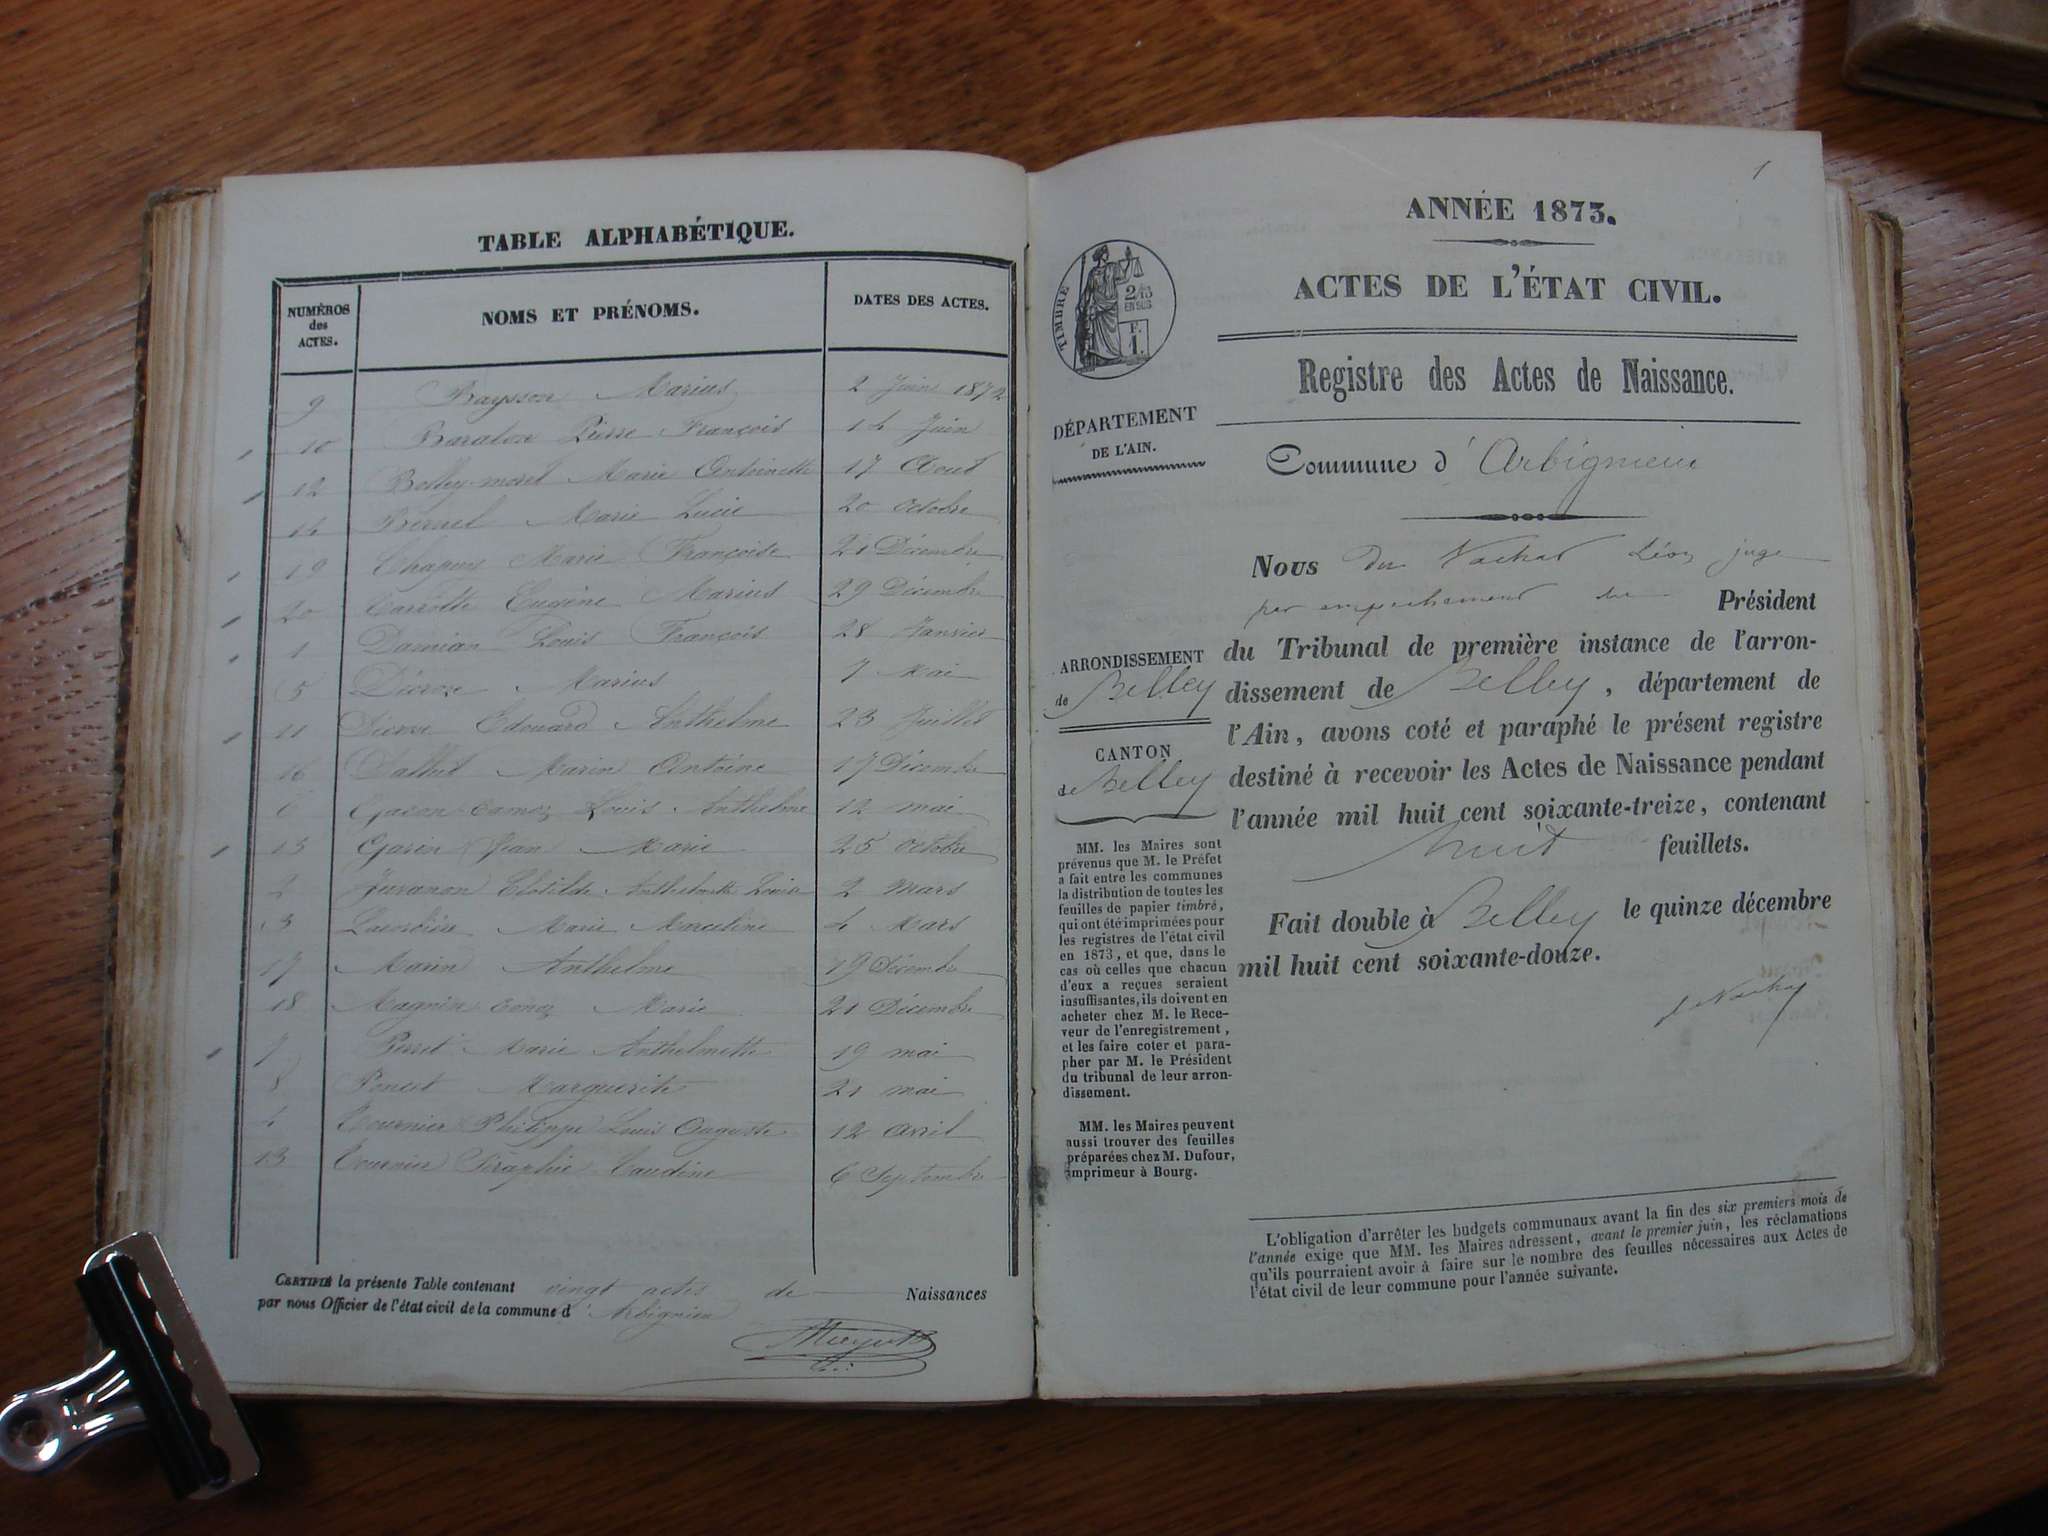 TABLE ALPHABÉTIQUE.
NUMÉROS des ACTES.
NOMS ET PRÉNOMS.
DATES DES ACTES.
9 Marius 2 Juin 1872
10 Pierre François 14 Juin
12 Marie Antoinette 17 Aout
14 Marie Lucie 20 Octobre
19 Marie Françoise 21 Décembre
20 Eugène Marius 29 Décembre
1 Damian Louis François 28 Janvier
5 Marius 7 Mai
11 Edouard Anthelme 23 Juillet
16 Antoine 17 Décembre
6 Louis Anthelme 12 mai
15 Garin Jean Marie 25 Octobre
2 Juvanon Clotilde Anthelmette 2 Mars
3 Marie Marceline 4 Mars
17 Marin Anthelme 19 Décembre
18 Magnin Marie 21 Décembre
7 Perret Marie Anthelmette 19 mai
8 Marguerite 21 mai
4 Tournier Philippe Louis Auguste 12 Avril
13 Tournier Séraphie 6 Septembre
CERTIFIÉ la présente Table contenant vingt actes de Naissances
par nous Officier de l'état civil de la commune d'Arbignieu
1
ANNÉE 1873.
ACTES DE L'ÉTAT CIVIL.
TIMBRE
2/10
EN SUS
F.
1.
Registre des Actes de Naissance.
DÉPARTEMENT
DE L'AIN.
Commune d'Arbignieu
Nous Du Vachat Léon juge
par empechement du Président
du Tribunal de première instance de l'arron-
dissement de Belley, département de
l'Ain, avons coté et paraphé le présent registre
destiné à recevoir les Actes de Naissance pendant
l'année mil huit cent soixante-treize, contenant
huit feuillets.
Fait double à Belley le quinze décembre
mil huit cent soixante-douze.
ARRONDISSEMENT
de Belley
CANTON
de Belley
MM. les Maires sont
prévenus que M. le Préfet
a fait entre les communes
la distribution de toutes les
feuilles de papier timbré,
qui ont été imprimées pour
les registres de l'état civil
en 1873, et que, dans le
cas où celles que chacun
d'eux a reçues seraient
insuffisantes, ils doivent en
acheter chez M. le Rece-
veur de l'enregistrement,
et les faire coter et para-
pher par M. le Président
du tribunal de leur arron-
dissement.
MM. les Maires peuvent
aussi trouver des feuilles
préparées chez M. Dufour,
imprimeur à Bourg.
L'obligation d'arrêter les budgets communaux avant la fin des six premiers mois de
l'année exige que MM. les Maires adressent, avant le premier juin, les réclamations
qu'ils pourraient avoir à faire sur le nombre des feuilles nécessaires aux Actes de
l'état civil de leur commune pour l'année suivante.